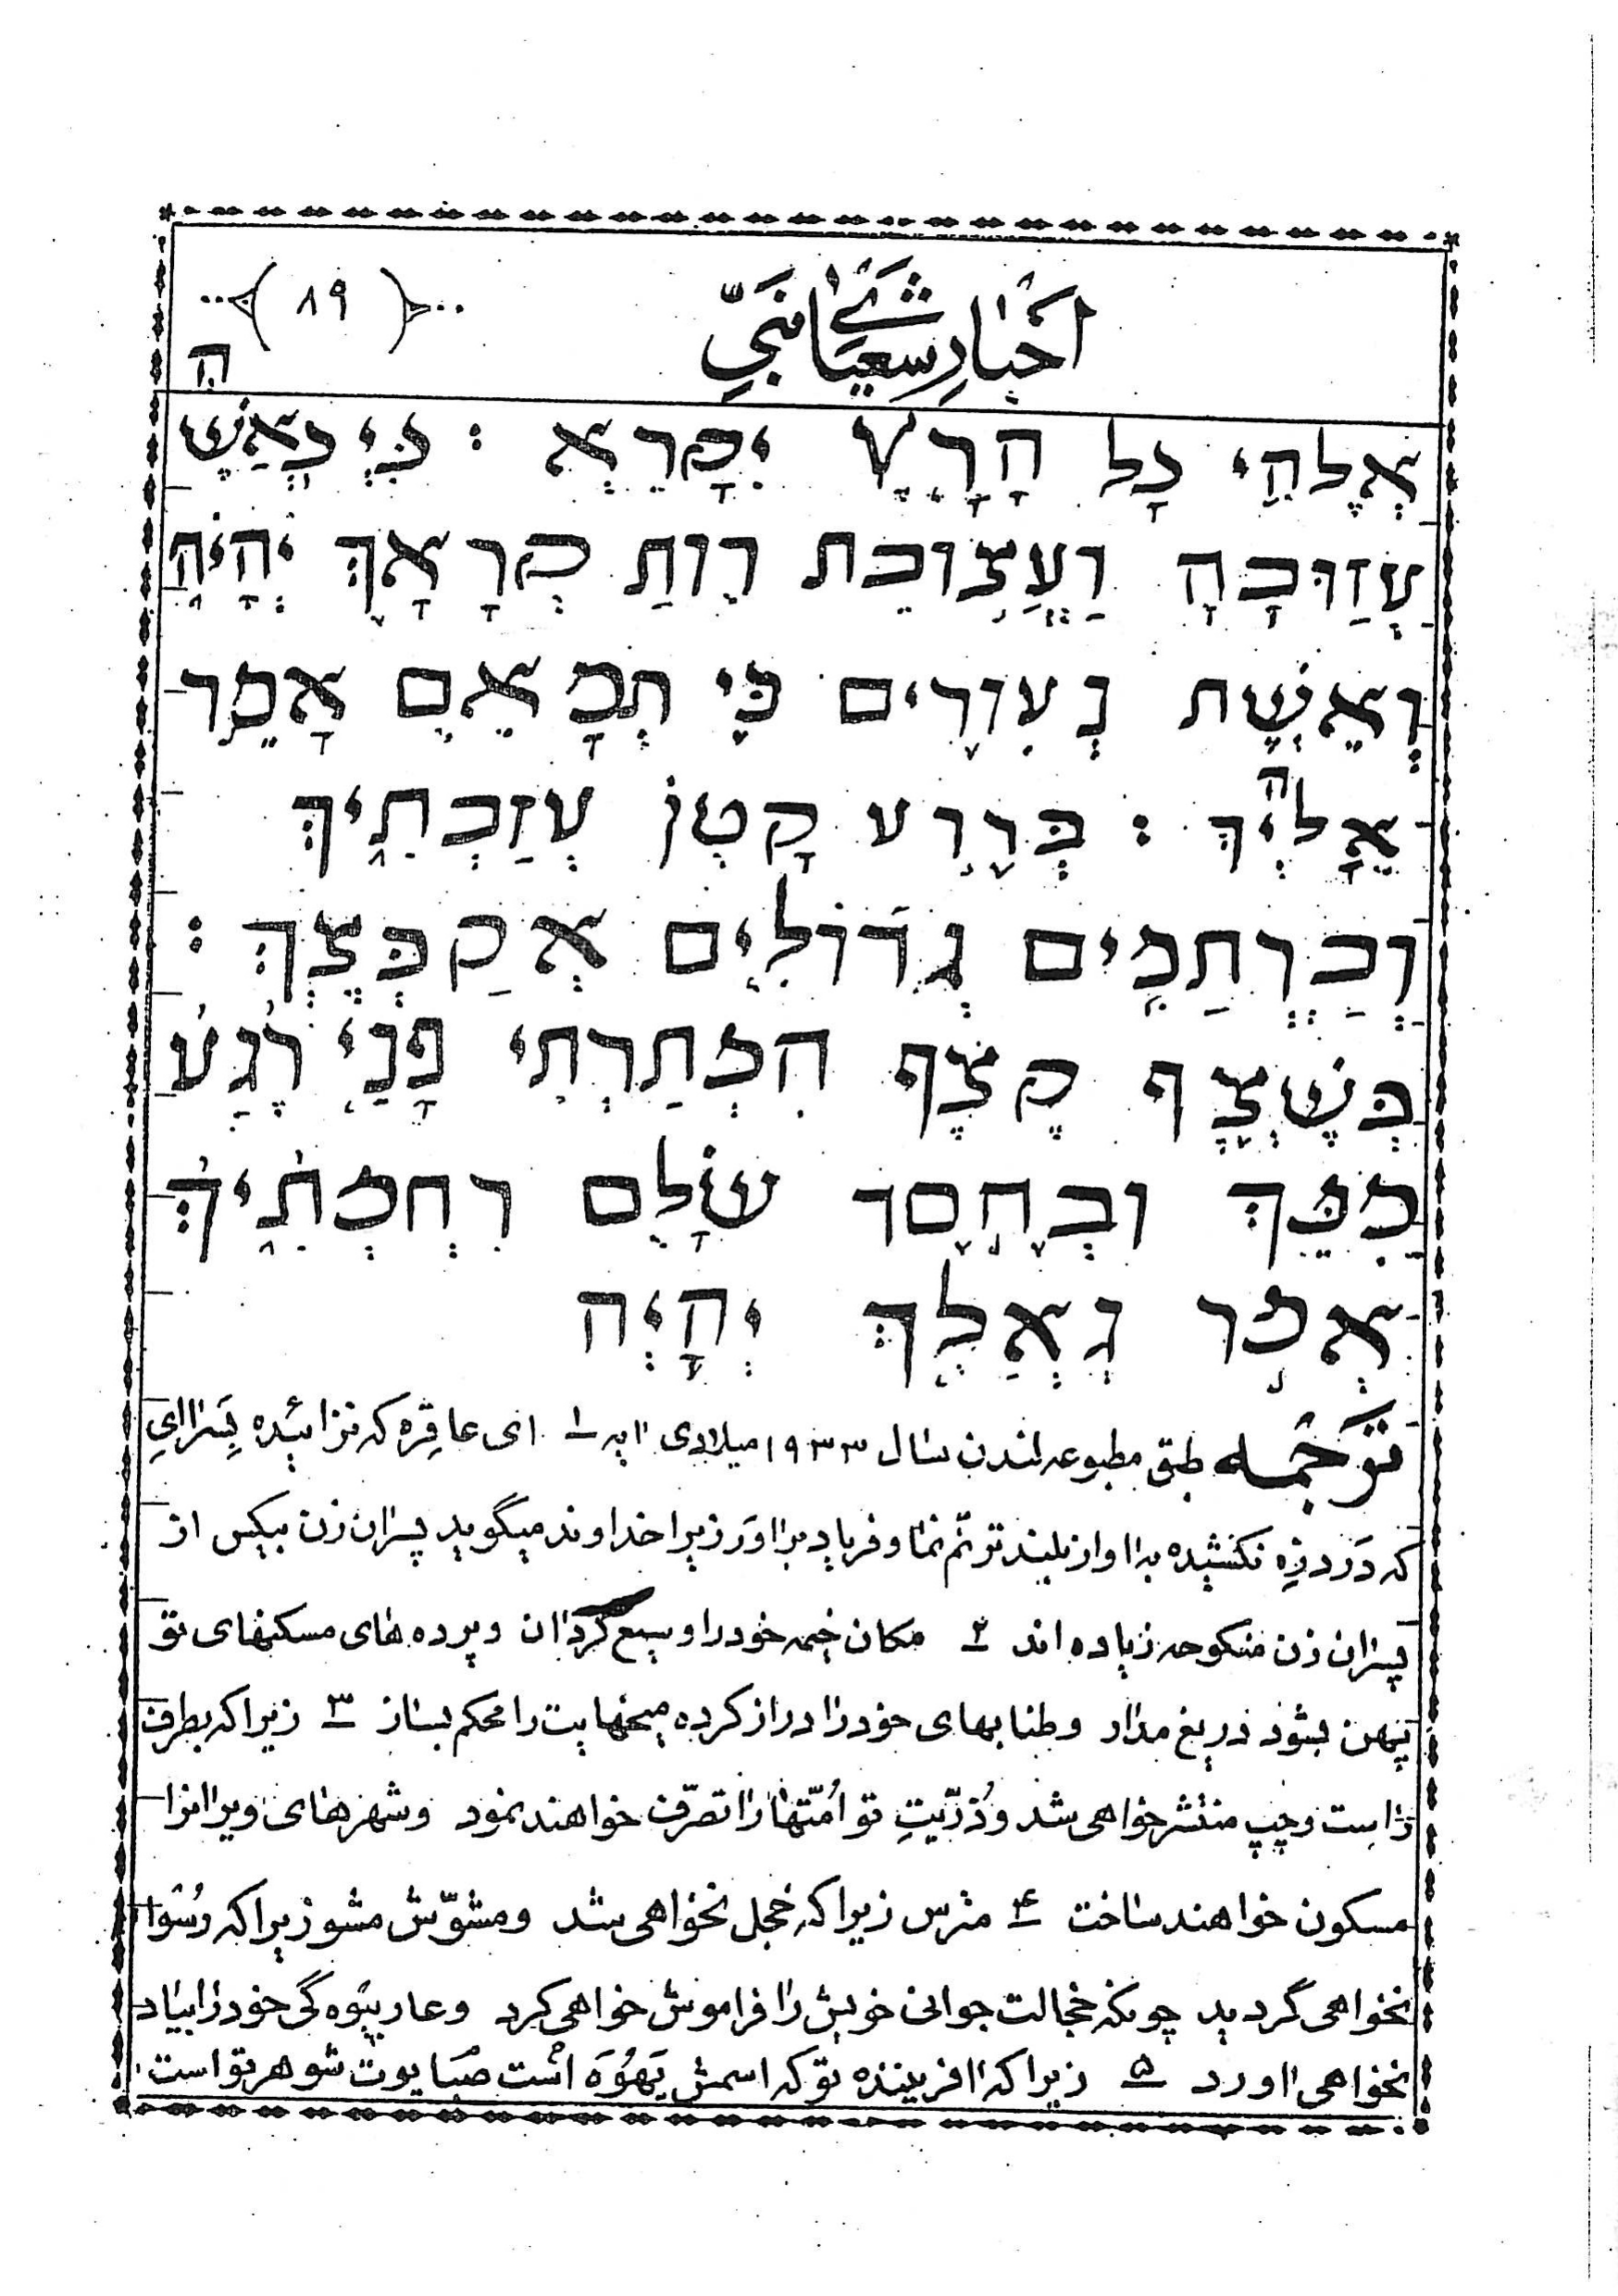 اخبار شعیای نبیّ (۸۹)
ה
אלהי כל הרץ יקרא : כי כאש
עזובה ועצובת רות קראך יהיה
ואשת נעורים כי תמאם אמר
אליך ה : ברגע קטן עזבתיך
וברחמים גדולים אקבצך :
בשצף קצף הסתרתי פני רגע
ממך ובחסד שלם רחמתיך
אמר גאלך יהיה
ترجمه طبق مطبوعه لندن سال ۱۹۳۳ میلادی ایه ۱ ای عاقره که نزائیده بسرای
که درد زه نکشیده به اواز بلند ترنّم نما و فریاد براور زیرا خداوند میگوید پسران زن بیکس از
پسران زن منکوحه زیاده اند ۲ مکان خیمه خود را وسیع گردان و پرده های مسکنهای تو
پهن بشود دریغ مدار و طنابهای خود را دراز کرده میخهایت را محکم بساز ۳ زیرا که بطرف
راست و چپ منتشر خواهی شد و ذرّیتِ تو امّتها را تصرّف خواهند نمود و شهرهای ویرانرا
مسکون خواهند ساخت ۴ مترس زیرا که خجل نخواهی شد و مشوّش مشو زیرا که رسوا
نخواهی گردید چونکه خجالت جوانی خویش را فراموش خواهی کرد و عار بیوه گی خود را بیاد
نخواهی اورد ۵ زیرا که افریننده تو که اسمش یَهُوَه است صبایوت شوهر تو است